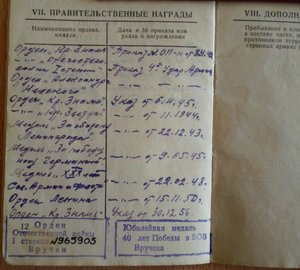 VII. ПРАВИТЕЛЬСТВЕННЫЕ НАГРАДЫ
VIII. ДОПОЛНИ
Наименование ордена, медали
Дата и № приказа или указа о награждении
Орден „Кр. Знамя"
Орден „Александра Невского"
Приказ 4 Удар. Армии
Орден „Кр. Знамя" Указ от 6.10.45 г.
-„- „Кр. Звезда" -„- от 11.1944 г.
Медаль „За оборону Ленинграда" -„- от 22.12.43 г.
Медаль „За победу над Германией" -„- от 9.05.45 г.
Медаль „XXX лет Сов. Армии и флота" -„- от 22.02.48 г.
Орден Ленина -„- от 15.11.50 г.
Орден „Кр. Знамя" Указ от 30.12.56.
12 Орден
Отечественной войны
I степени №965905
Вручен
Юбилейная медаль
40 лет Победы в ВОВ
Вручена